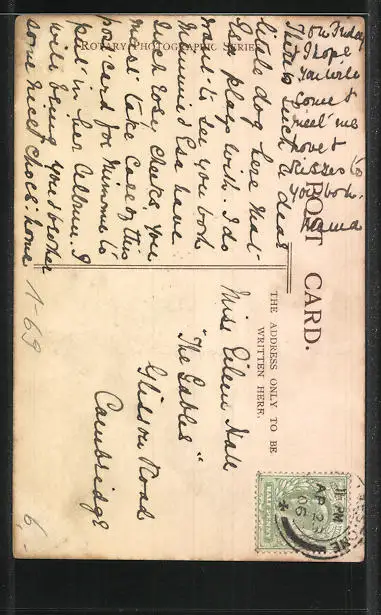 ROTARY PHOTOGRAPHIC SERIES
POST CARD.
THE ADDRESS ONLY TO BE
WRITTEN HERE.
There is such a dear
little dog here that
Esa plays with. I do
want to see you both
Mummid Esa have
such rosy cheeks, you
must take care of this
post card for Mummie to
put in her Album. I
will bring you & brother
some nice choc: home
on Friday
& I hope
You will
come &
meet me
love &
Kisses to
you both.
Mama
Miss Eileen Hall
"The Gables"
Glisson Road
Cambridge
HALF PENNY
PM
AP 2
06
1-69
6,